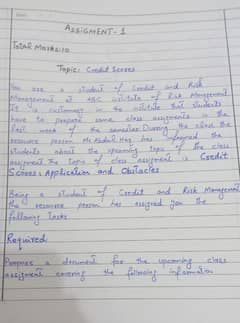 ASSIGMENT-1
Total Marks:10
Topic: Credit Scores
You are a student of Credit and Risk
Management at ABC institute of Risk Management
It is customary in the institute that students
have to prepare some class assignments in the
last week of the semester. During the class the
resource person Mr. Abdul Haq has informed the
students about the upcoming topic of the class
assigment. The topic of class assigment is Credit
Scores: Application and Obstacles
Being a student of Credit and Risk Management
the resource person has assigned you the
following tasks
Required
Prepare a document for the upcoming class
assigment covering the following information